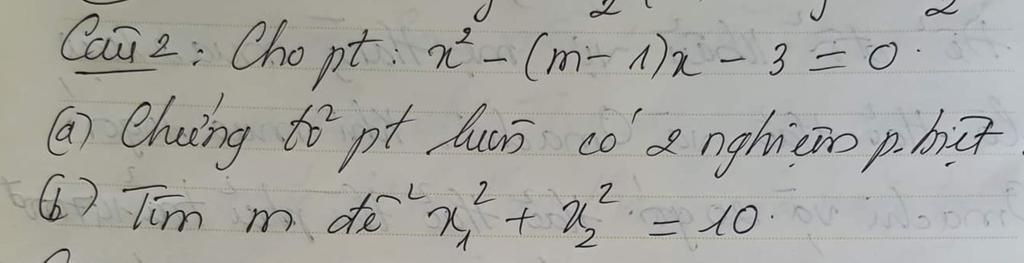 Câu 2: Cho pt: x² - (m - 1)x - 3 = 0.
(a) Chứng tỏ pt luôn có 2 nghiệm p.biệt.
(b) Tìm m để x₁² + x₂² = 10.